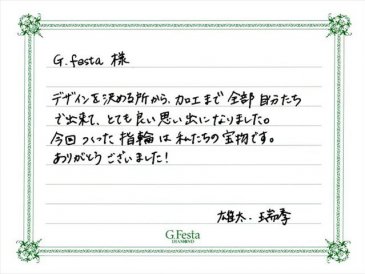 G.festa 様
デザインを決める所から、加工まで全部自分たち
で出来て、とても良い思い出になりました。
今回つくった指輪は私たちの宝物です。
ありがとうございました!
雄太・瑞季
G.Festa
DIAMOND